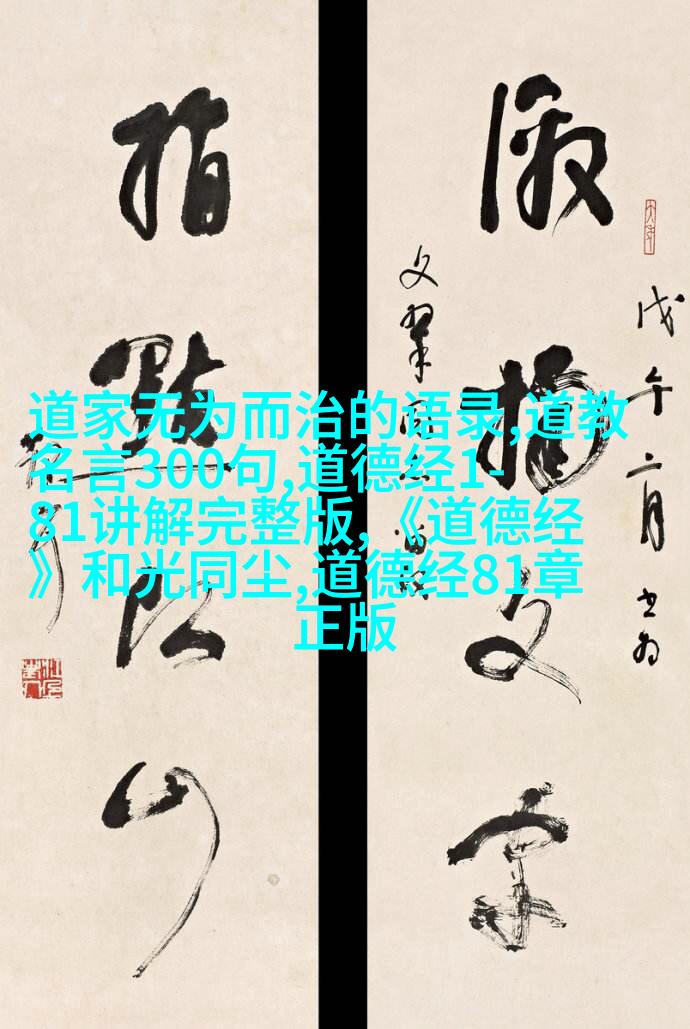 激揚文字
戊午二月书为
指點江山
道家无为而治的语录,道教
名言300句,道德经1-
81讲解完整版,《道德经
》和光同尘,道德经81章
正版